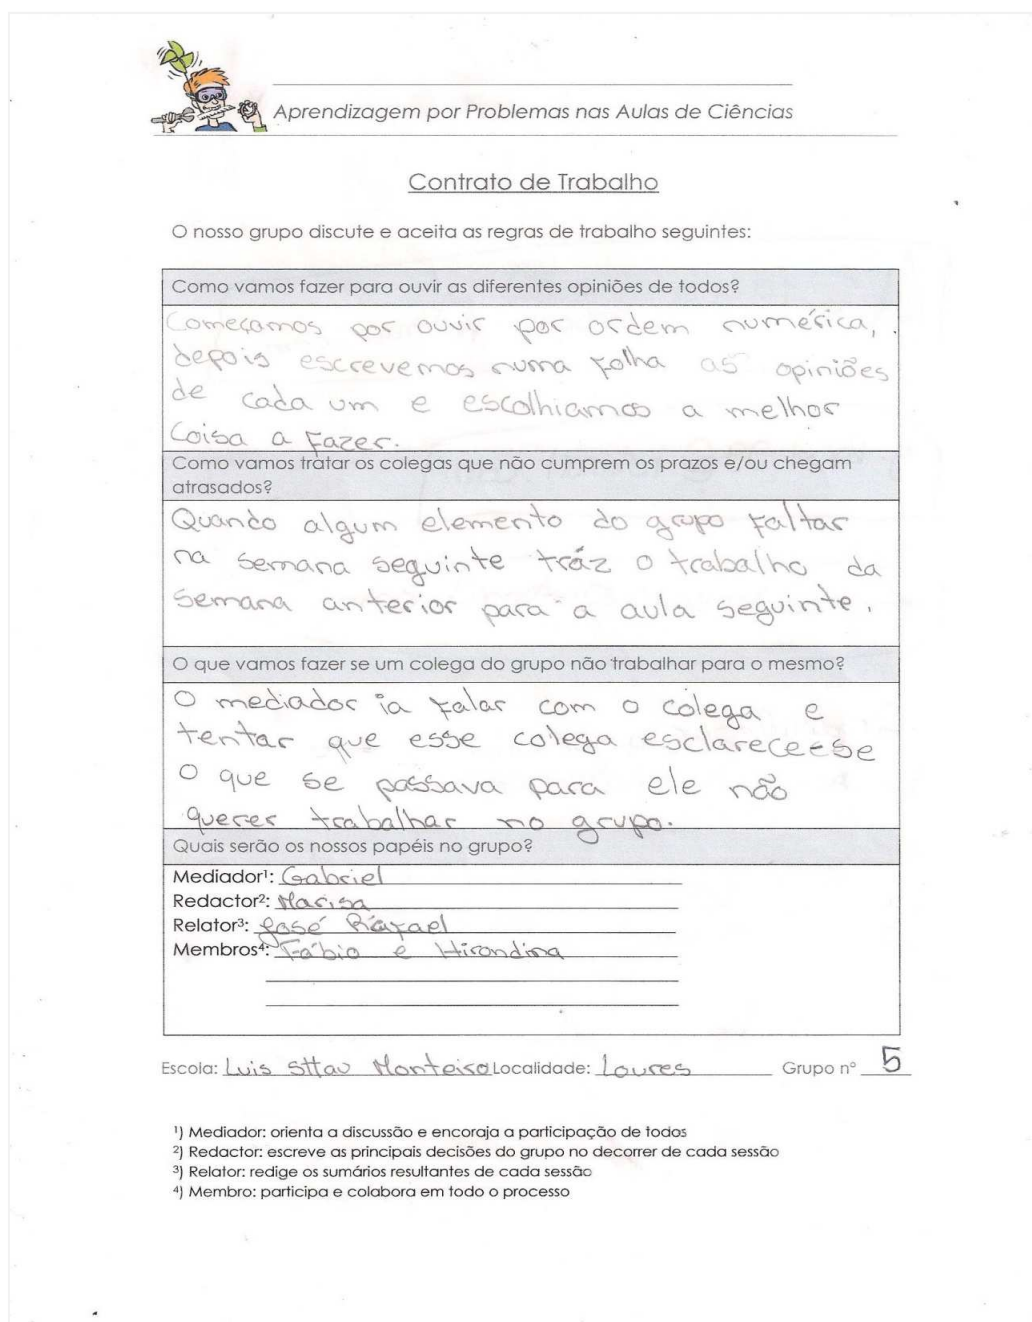 Aprendizagem por Problemas nas Aulas de Ciências
Contrato de Trabalho
O nosso grupo discute e aceita as regras de trabalho seguintes:
Como vamos fazer para ouvir as diferentes opiniões de todos?
Começamos por ouvir por ordem numérica,
depois escrevemos numa folha as opiniões
de cada um e escolhiamos a melhor
Coisa a Fazer.
Como vamos tratar os colegas que não cumprem os prazos e/ou chegam
atrasados?
Quando algum elemento do grupo faltar
na semana seguinte tráz o trabalho da
semana anterior para a aula seguinte.
O que vamos fazer se um colega do grupo não trabalhar para o mesmo?
O mediador ia falar com o colega e
tentar que esse colega esclareceesse
O que se passava para ele não
querer trabalhar no grupo.
Quais serão os nossos papéis no grupo?
Mediador¹: Gabriel
Redactor²: Marisa
Relator³: José Rafael
Membros⁴: Fábio e Hirondina
Escola: Luis Sttau Monteiro Localidade: Loures Grupo nº 5
¹) Mediador: orienta a discussão e encoraja a participação de todos
²) Redactor: escreve as principais decisões do grupo no decorrer de cada sessão
³) Relator: redige os sumários resultantes de cada sessão
⁴) Membro: participa e colabora em todo o processo